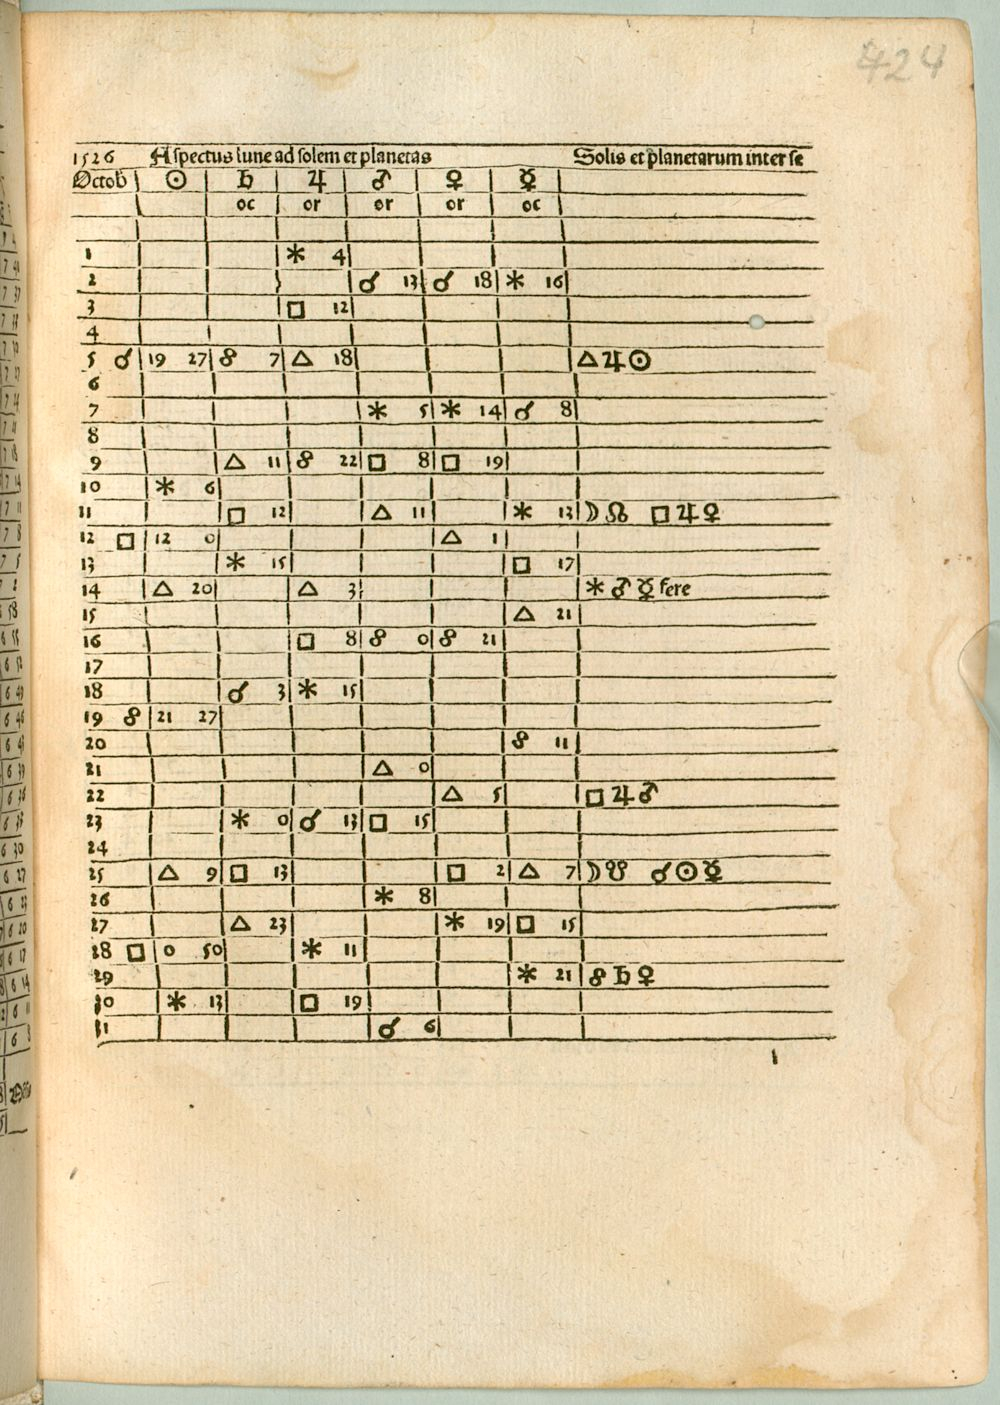 424
1526 Aspectus lune ad solem et planetas Solis et planetarum inter se
Octob ☉ ♄ ♃ ♂ ♀ ☿
oc or or or oc
1 ⚹ 4
2 ☌ 13 ☌ 18 ⚹ 16
3 □ 12
4
5 ☌ 19 27 ☍ 7 △ 18 △ ♃ ☉
6
7 ⚹ 5 ⚹ 14 ☌ 8
8
9 △ 11 ☍ 22 □ 8 □ 19
10 ⚹ 6
11 □ 12 △ 11 ⚹ 13 ☽ ☊ □ ♃ ♀
12 □ 12 0 △ 1
13 ⚹ 15 □ 17
14 △ 20 △ 3 ⚹ ♂ ☿ fere
15 △ 21
16 □ 8 ☍ 0 ☍ 21
17
18 ☌ 3 ⚹ 15
19 ☍ 21 27
20 ☍ 11
21 △ 0
22 △ 5 □ ♃ ♂
23 ⚹ 0 ☌ 13 □ 15
24
25 △ 9 □ 13 □ 2 △ 7 ☽ ☋ ☌ ☉ ☿
26 ⚹ 8
27 △ 23 ⚹ 19 □ 15
28 □ 0 50 ⚹ 11
29 ⚹ 21 ☍ ♄ ♀
30 ⚹ 13 □ 19
31 ☌ 6